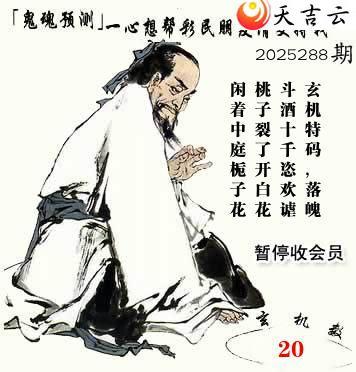 天吉云
「鬼魂预测」一心想帮彩民朋
2025288期
玄机特码，落魄
斗酒十千恣欢谑
桃子裂了开白花
闲着中庭栀子花
暂停收会员
玄机数
20